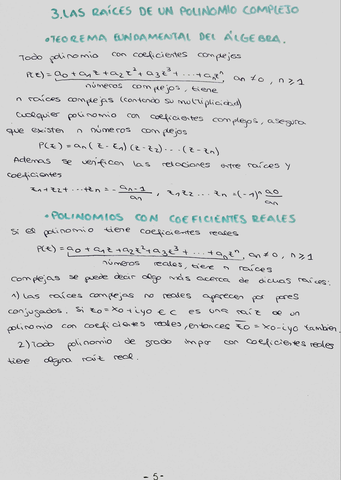 3. LAS RAÍCES DE UN POLINOMIO COMPLEJO
• TEOREMA FUNDAMENTAL DEL ÁLGEBRA.
Todo polinomio con coeficientes complejos
P(z) = a0 + a1z + a2z² + a3z³ + ... + anzⁿ, an ≠ 0, n ≥ 1
números complejos, tiene
n raíces complejas (contando su multiplicidad)
Cualquier polinomio con coeficientes complejos, asegura
que existen n números complejos
P(z) = an (z - z1) (z - z2) ... (z - zn)
Además se verifican las relaciones entre raíces y
coeficientes
z1 + z2 + ... + zn = - an-1/an , z1 z2 ... zn = (-1)ⁿ a0/an
• POLINOMIOS CON COEFICIENTES REALES
Si el polinomio tiene coeficientes reales
P(z) = a0 + a1z + a2z² + a3z³ + ... + anzⁿ, an ≠ 0, n ≥ 1
números reales, tiene n raíces
complejas se puede decir algo más acerca de dichas raíces:
1) Las raíces complejas no reales aparecen por pares
conjugados. Si z0 = x0 + iy0 ∈ C es una raíz de un
polinomio con coeficientes reales, entonces z̅0 = x0 - iy0 también.
2) Todo polinomio de grado impar con coeficientes reales
tiene alguna raíz real.
- 5 -